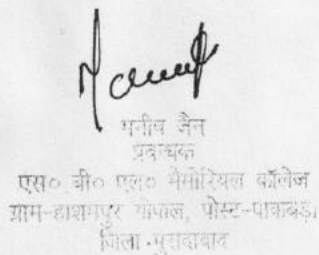 मनीष जैन
प्रबन्धक
एस० बी० एल० मैमोरियल कॉलेज
ग्राम-हाशमपुर गोपाल, पोस्ट-पाकबड़ा
जिला-मुरादाबाद